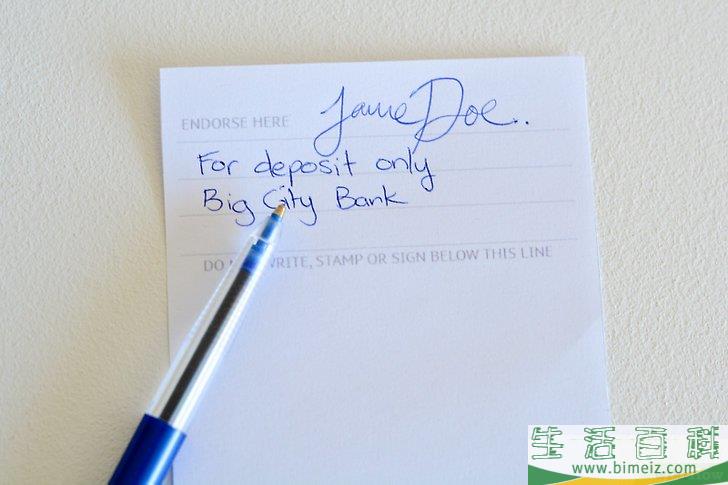 ENDORSE HERE Jane Doe..
For deposit only
Big City Bank
DO WRITE, STAMP OR SIGN BELOW THIS LINE
生活百科
www.bimeiz.com